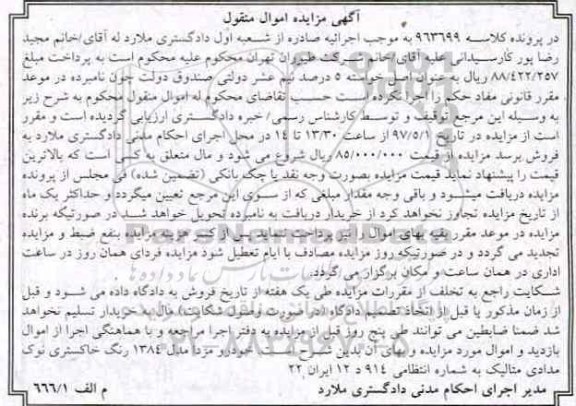 آگهی مزایده اموال منقول
در پرونده کلاسه ۹۶۳۶۹۹ به موجب اجرائیه صادره از شعبه اول دادگستری ملارد له آقای/خانم مجید
رضا پور کارسیدانی علیه آقای/خانم شرکت طیوران تهران محکوم علیه محکوم است به پرداخت مبلغ
۸۸/۴۲۲/۲۵۷ ریال به عنوان اصل خواسته ۵ درصد نیم عشر دولتی صندوق دولت چون نامبرده در موعد
مقرر قانونی مفاد حکم را اجرا نکرده است حسب تقاضای محکوم له اموال منقول محکوم به شرح زیر
به وسیله این مرجع توقیف و توسط کارشناس رسمی/ خبره دادگستری ارزیابی گردیده است و مقرر
است از مزایده در تاریخ ۹۷/۵/۱ از ساعت ۱۳/۳۰ تا ۱۴ در محل اجرای احکام مدنی دادگستری ملارد به
فروش برسد مزایده از قیمت ۸۵/۰۰۰/۰۰۰ ریال شروع می شود و مال متعلق به کسی است که بالاترین
قیمت را پیشنهاد نماید قیمت مزایده بصورت وجه نقد یا چک بانکی (تضمین شده) فی مجلس از پرونده
مزایده دریافت میشود و باقی وجه مقدار مبلغی که از سوی این مرجع تعیین میگردد و حداکثر یک ماه
از تاریخ مزایده تجاوز نخواهد کرد از خریدار دریافت به نامبرده تحویل خواهد شد در صورتیکه برنده
مزایده در موعد مقرر بقیه بهای اموال را نپرداخت نماید پس از کسر هزینه مزایده بنفع ضبط و مزایده
تجدید می گردد و در صورتیکه روز مزایده مصادف با ایام تعطیل شود مزایده فردای همان روز در ساعت
اداری در همان ساعت و مکان برگزار می گردد.
شکایت راجع به تخلف از مقررات مزایده طی یک هفته از تاریخ فروش به دادگاه داده می شود و قبل
از زمان مذکور یا قبل از اتخاذ تصمیم دادگاه (در صورت وصول شکایت) مال به خریدار تسلیم نخواهد
شد ضمنا ضابطین می توانند طی پنج روز قبل از مزایده به دفتر اجرا مراجعه و با هماهنگی اجرا از اموال
بازدید و اموال مورد مزایده و بهای آن بدین شرح است خودرو مزدا مدل ۱۳۸۴ رنگ خاکستری نوک
مدادی متالیک به شماره انتظامی ۹۱۴ د ۱۲ ایران ۲۲
مدیر اجرای احکام مدنی دادگستری ملارد
م الف ۶۶۶/۱
ParsNamadData
۰۲۱-۸۸۳۴۹۶۷۰-۵